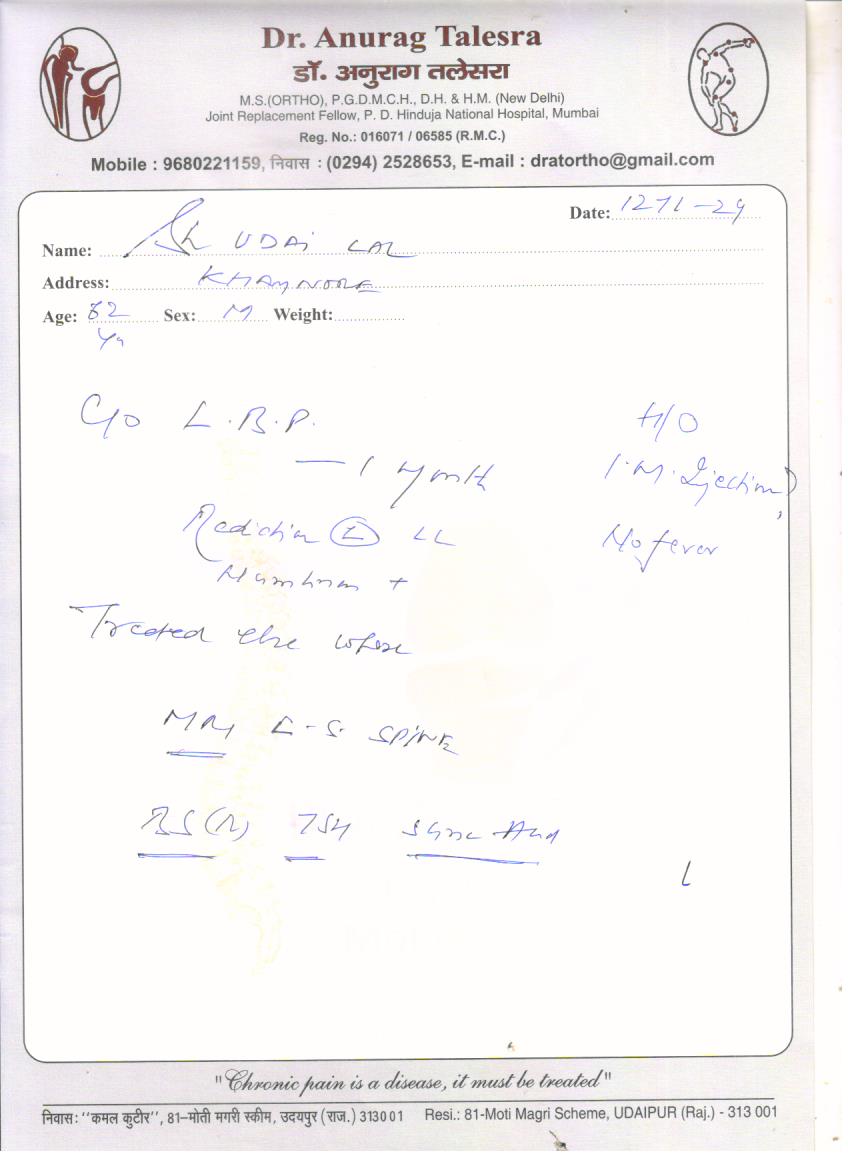 Dr. Anurag Talesra
डॉ. अनुराग तलेसरा
M.S.(ORTHO), P.G.D.M.C.H., D.H. & H.M. (New Delhi)
Joint Replacement Fellow, P. D. Hinduja National Hospital, Mumbai
Reg. No.: 016071 / 06585 (R.M.C.)
Mobile : 9680221159, निवास : (0294) 2528653, E-mail : dratortho@gmail.com
Date:
Name: UDAI LAL
Address:
Age: Sex: M Weight:
C/O L.B.P. H/O
— 1 month I.M. Injection
LL No fever
+
Treated else where
MRI L-S SPINE
"Chronic pain is a disease, it must be treated"
निवास: "कमल कुटीर", 81–मोती मगरी स्कीम, उदयपुर (राज.) 313001 Resi.: 81-Moti Magri Scheme, UDAIPUR (Raj.) - 313 001